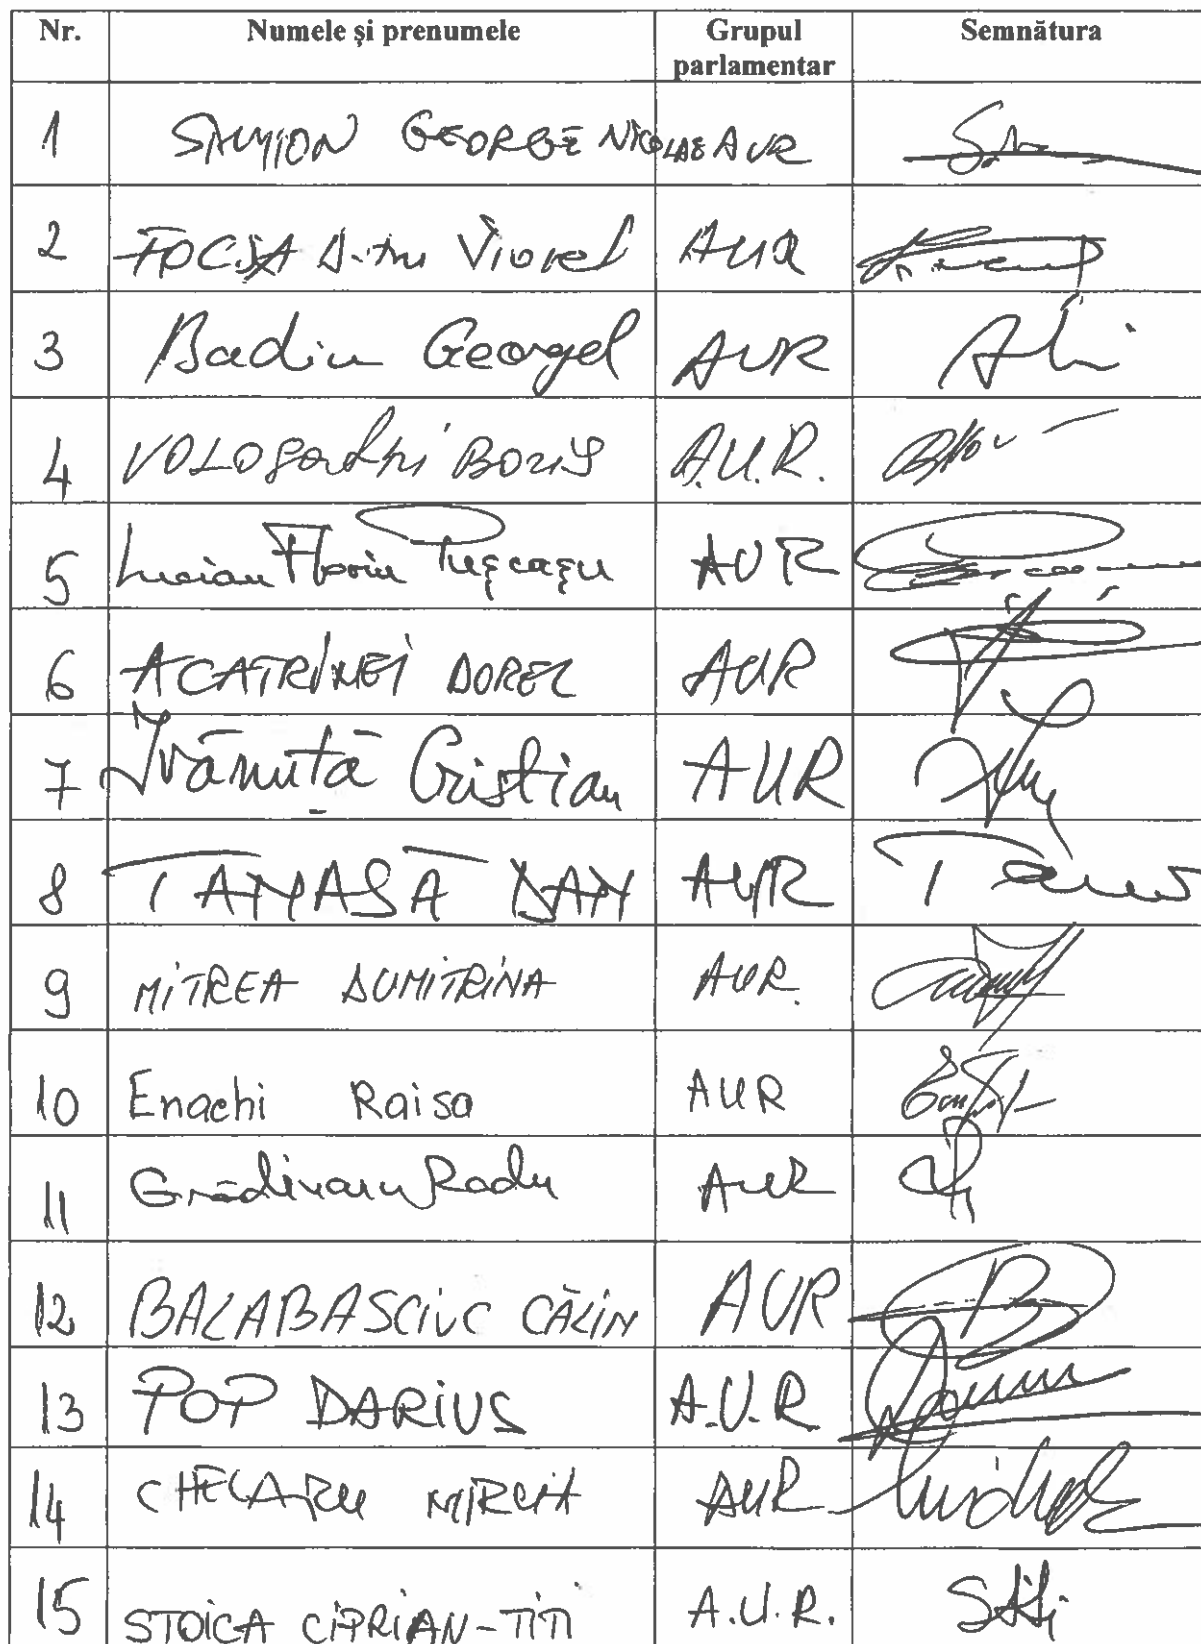 Nr. Numele și prenumele Grupul parlamentar Semnătura
1 SIMION GEORGE NICOLAE AUR
2 FOCȘA Viorel AUR
3 Badiu Georgel AUR
4 VOLOSATÎI BORIS A.U.R.
5 Lucian Florin Pușcașu AUR
6 ACATRINEI DOREL AUR
7 Ivănuță Cristian AUR
8 TANASĂ DAN AUR
9 MITREA DUMITRINA AUR.
10 Enachi Raisa AUR
11 Grădinaru Radu AUR
12 BALABAȘCIUC CĂLIN AUR
13 POP DARIUS A.U.R
14 CHELARU MIRCEA AUR
15 STOICA CIPRIAN-TITI A.U.R.